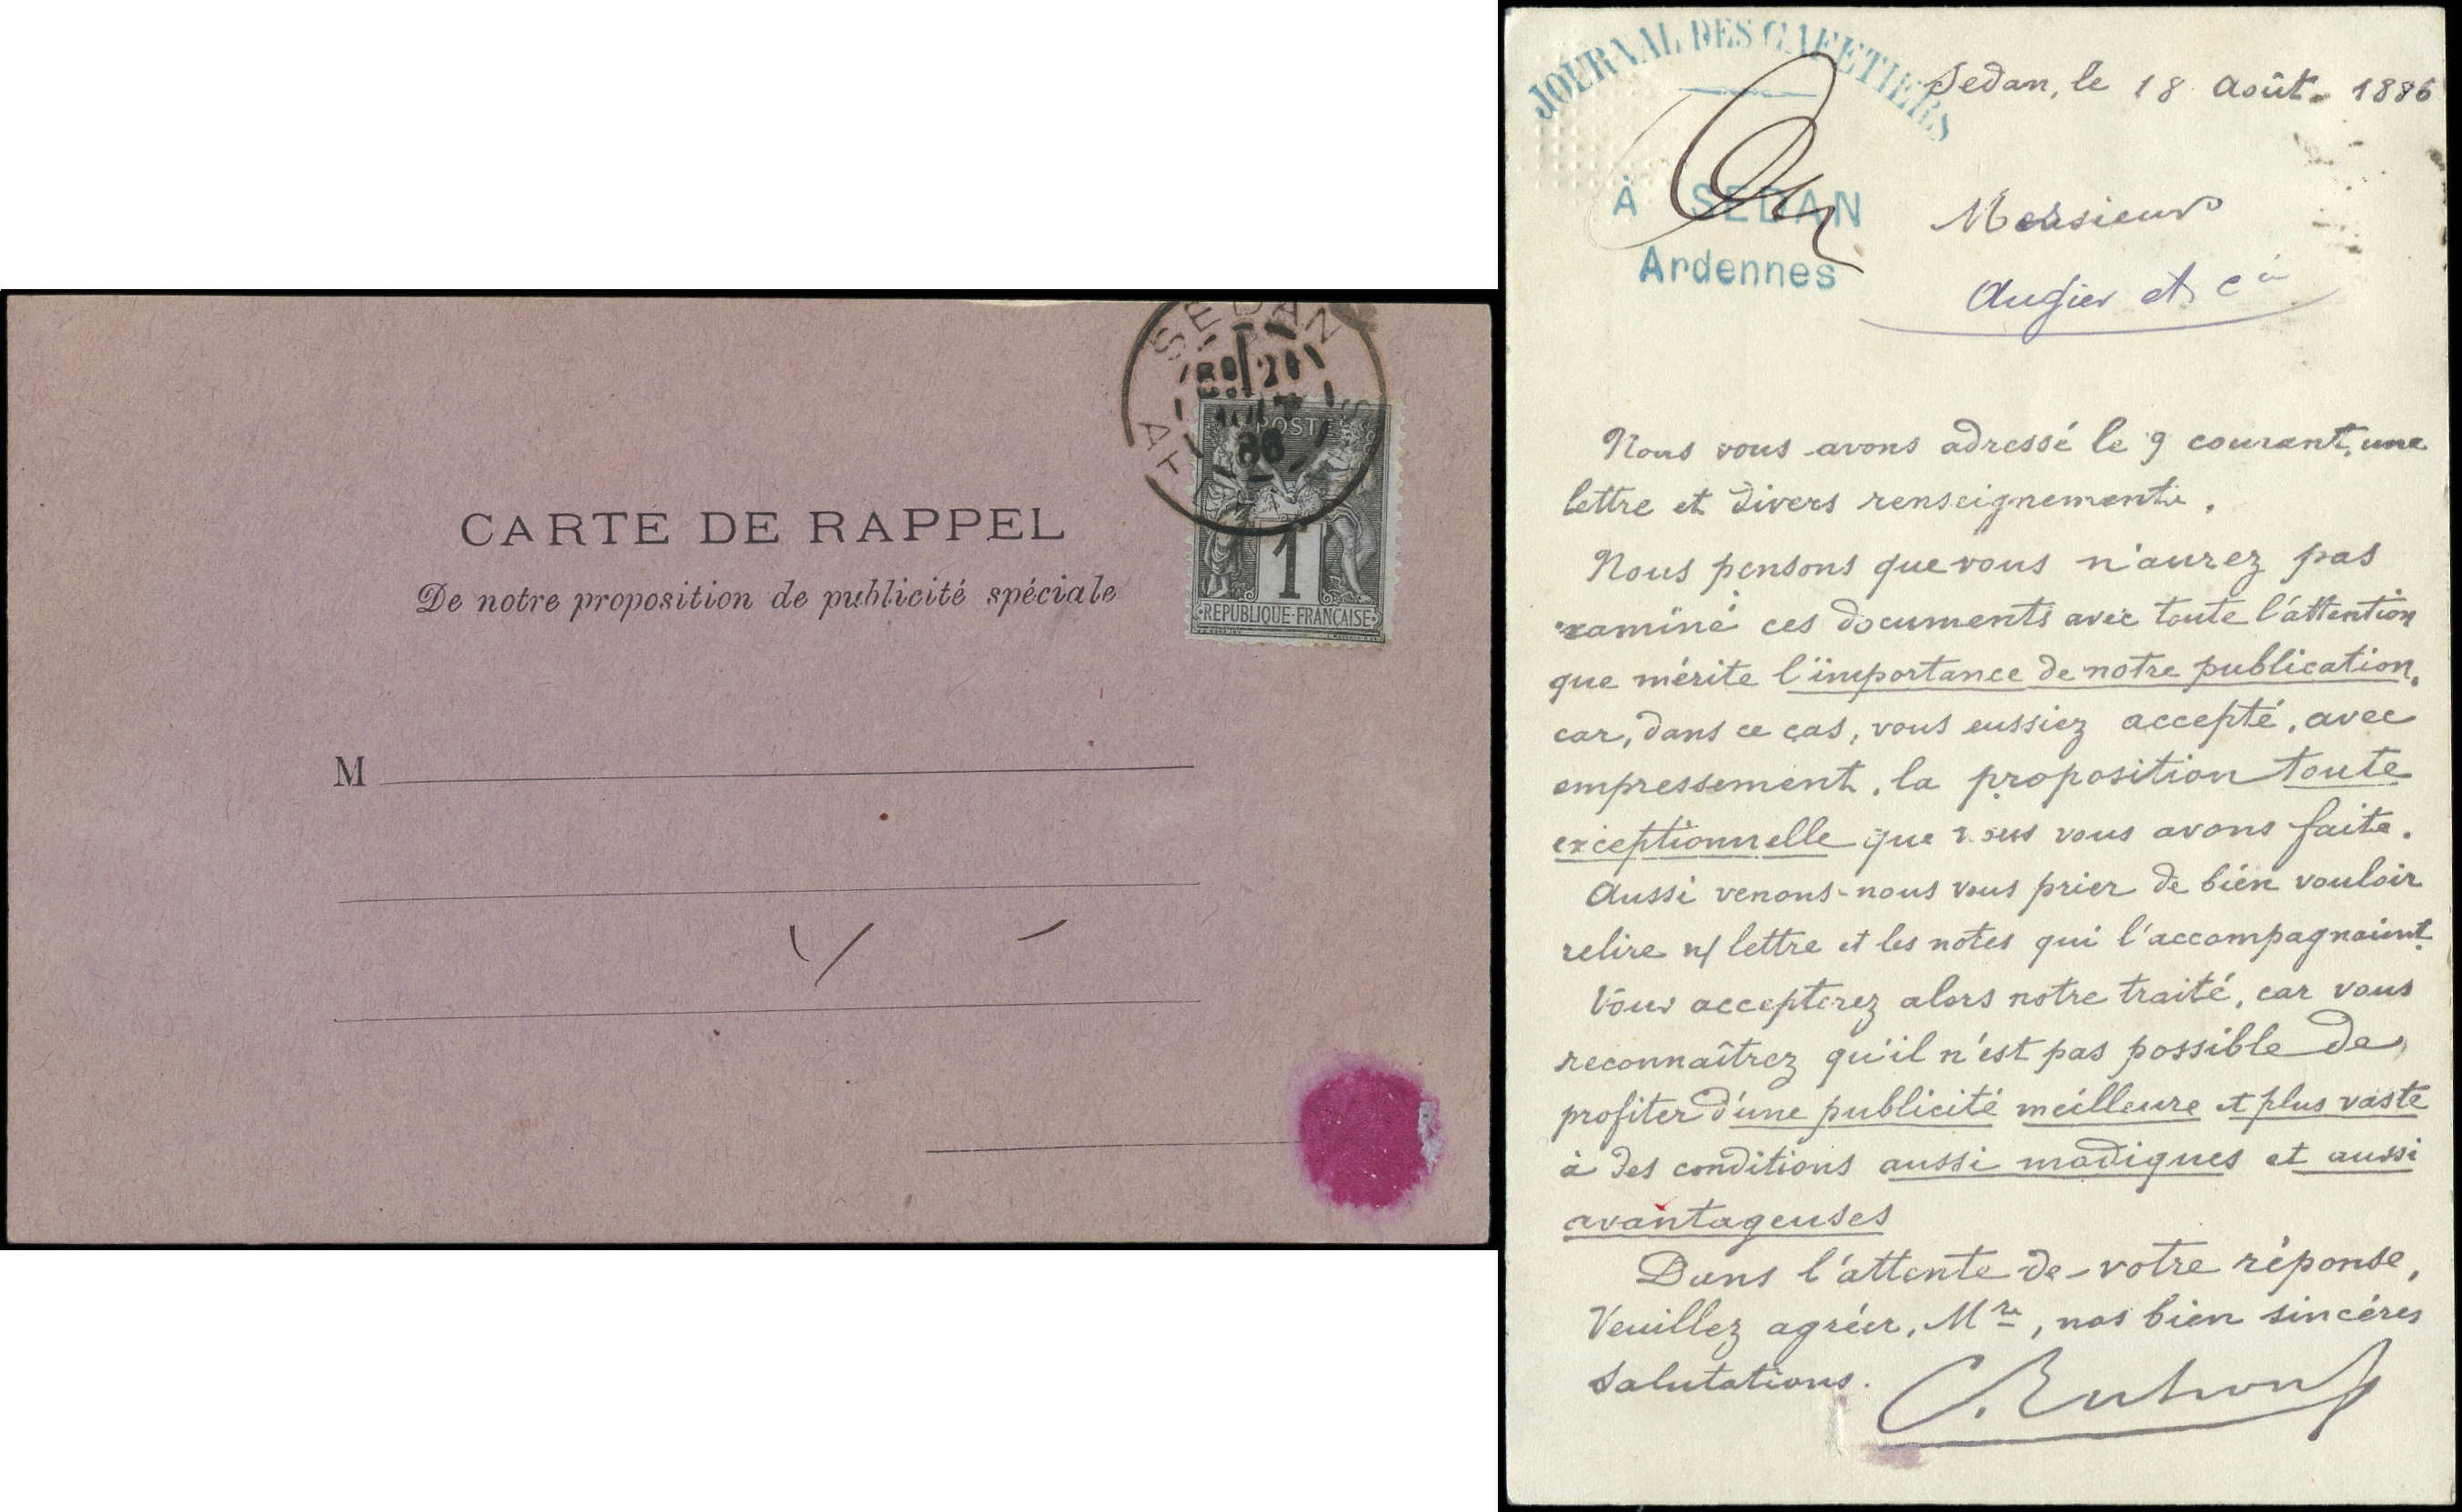 SEDAN
86
POSTE
1
REPUBLIQUE FRANÇAISE
CARTE DE RAPPEL
De notre proposition de publicité spéciale
M
JOURNAL DES CAFETIERS
À SEDAN
Ardennes
Sedan, le 18 Août. 1886
Messieurs
Augier et Cie
Nous vous avons adressé le 9 courant, une
lettre et divers renseignements.
Nous pensons que vous n'aurez pas
examiné ces documents avec toute l'attention
que mérite l'importance de notre publication,
car, dans ce cas, vous eussiez accepté, avec
empressement, la proposition toute
exceptionnelle que nous vous avons faite.
Aussi venons-nous vous prier de bien vouloir
relire n/ lettre et les notes qui l'accompagnaient.
Vous accepterez alors notre traité, car vous
reconnaîtrez qu'il n'est pas possible de
profiter d'une publicité meilleure et plus vaste
à des conditions aussi modiques et aussi
avantageuses
Dans l'attente de votre réponse,
Veuillez agréer, Mrs, nos bien sincères
salutations.